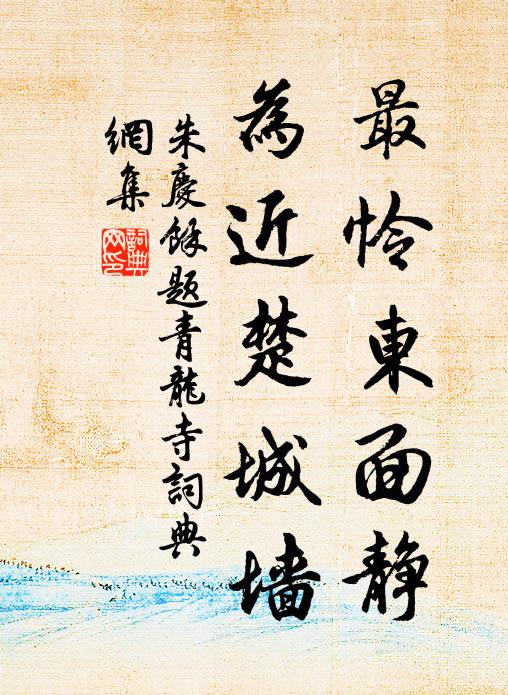 最怜東面静
為近楚城墙
朱慶餘题青龍寺詞典
網集
詞典
网印